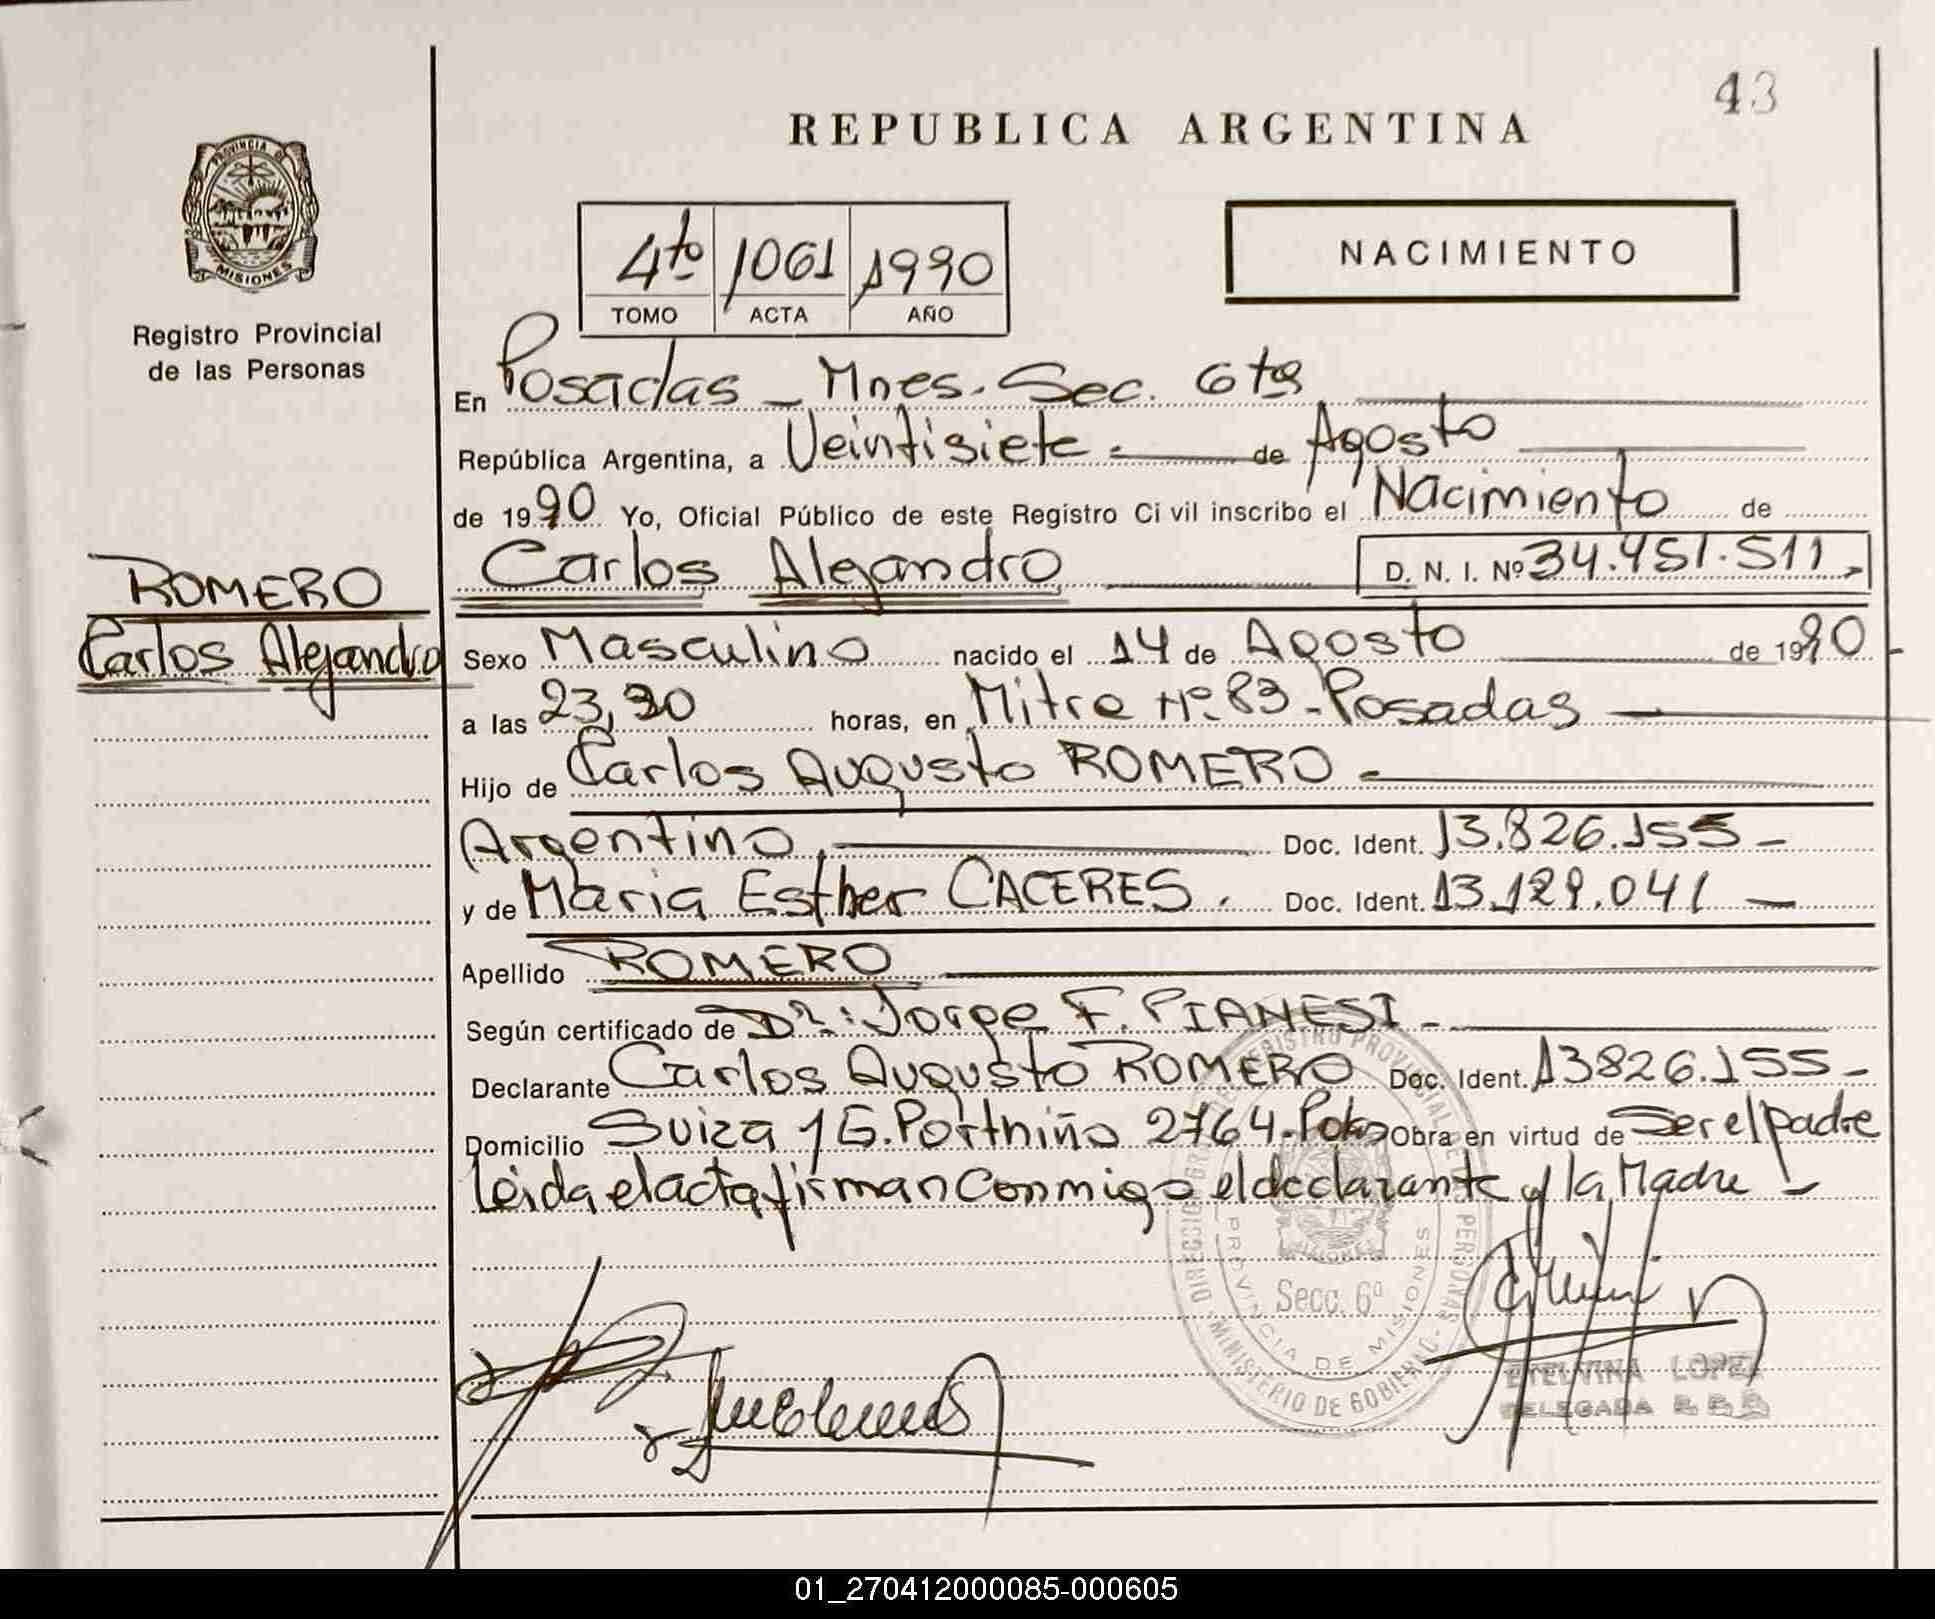 43
REPUBLICA ARGENTINA
PROVINCIA DE
MISIONES
Registro Provincial
de las Personas
4to 1061 1990
TOMO ACTA AÑO
NACIMIENTO
En Posadas - Mnes. Sec. 6ta
República Argentina, a Veintisiete.- de Agosto
de 1990 Yo, Oficial Público de este Registro Civil inscribo el Nacimiento de
Carlos Alejandro D. N. I. Nº 34.451.511
ROMERO
Carlos Alejandro
Sexo Masculino nacido el 14 de Agosto de 1990
a las 23,30 horas, en Mitre Nº 83 - Posadas
Hijo de Carlos Augusto ROMERO -
Argentino, Doc. Ident. 13.826.155 -
y de Maria Esther CACERES. Doc. Ident. 13.129.041 -
Apellido ROMERO
Según certificado de Dr: Jorge F. PIANESI -
Declarante Carlos Augusto ROMERO Doc. Ident. 13826.155 -
Domicilio Suiza y G. Portniño 2764 - Obra en virtud de Ser el padre
leida el acta firman conmigo el declarante y la Madre -
REGISTRO PROVINCIAL DE PERSONAS
MINISTERIO DE GOBIERNO
PROVINCIA DE MISIONES
Secc. 6ª
ETELVINA LOPEZ
DELEGADA
01_270412000085-000605